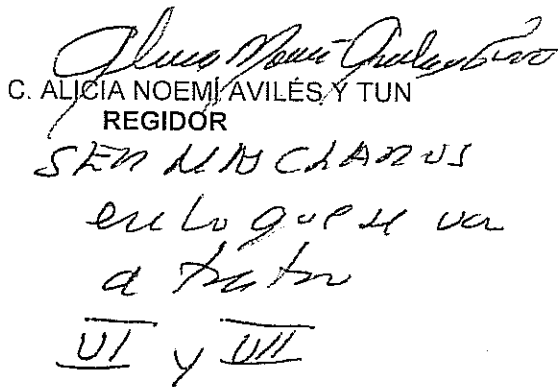 C. ALICIA NOEMÍ AVILÉS Y TUN
REGIDOR
SER MAS CLAROS
en lo que se va
a tratar
VI y VII